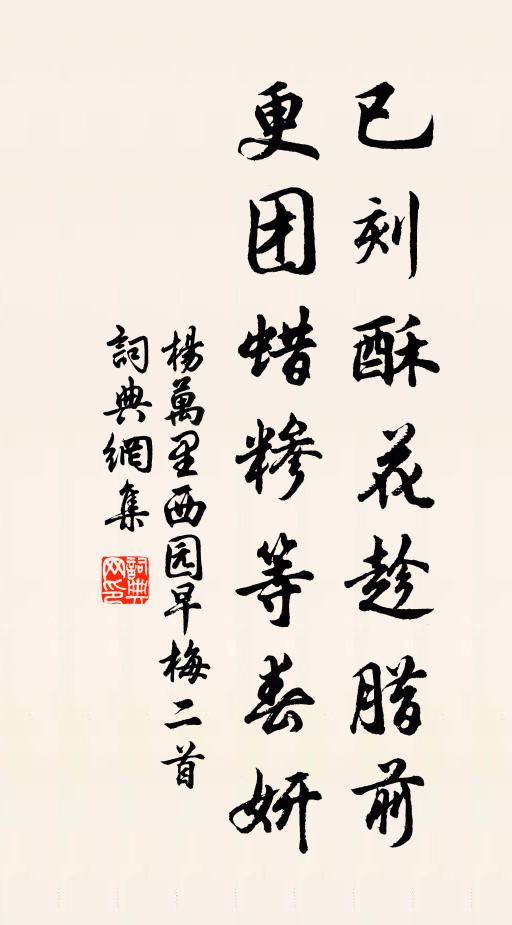 已刻酥花趁腊前
更团蜡糁等春妍
楊萬里西园早梅二首
詞典網集
詞典网印